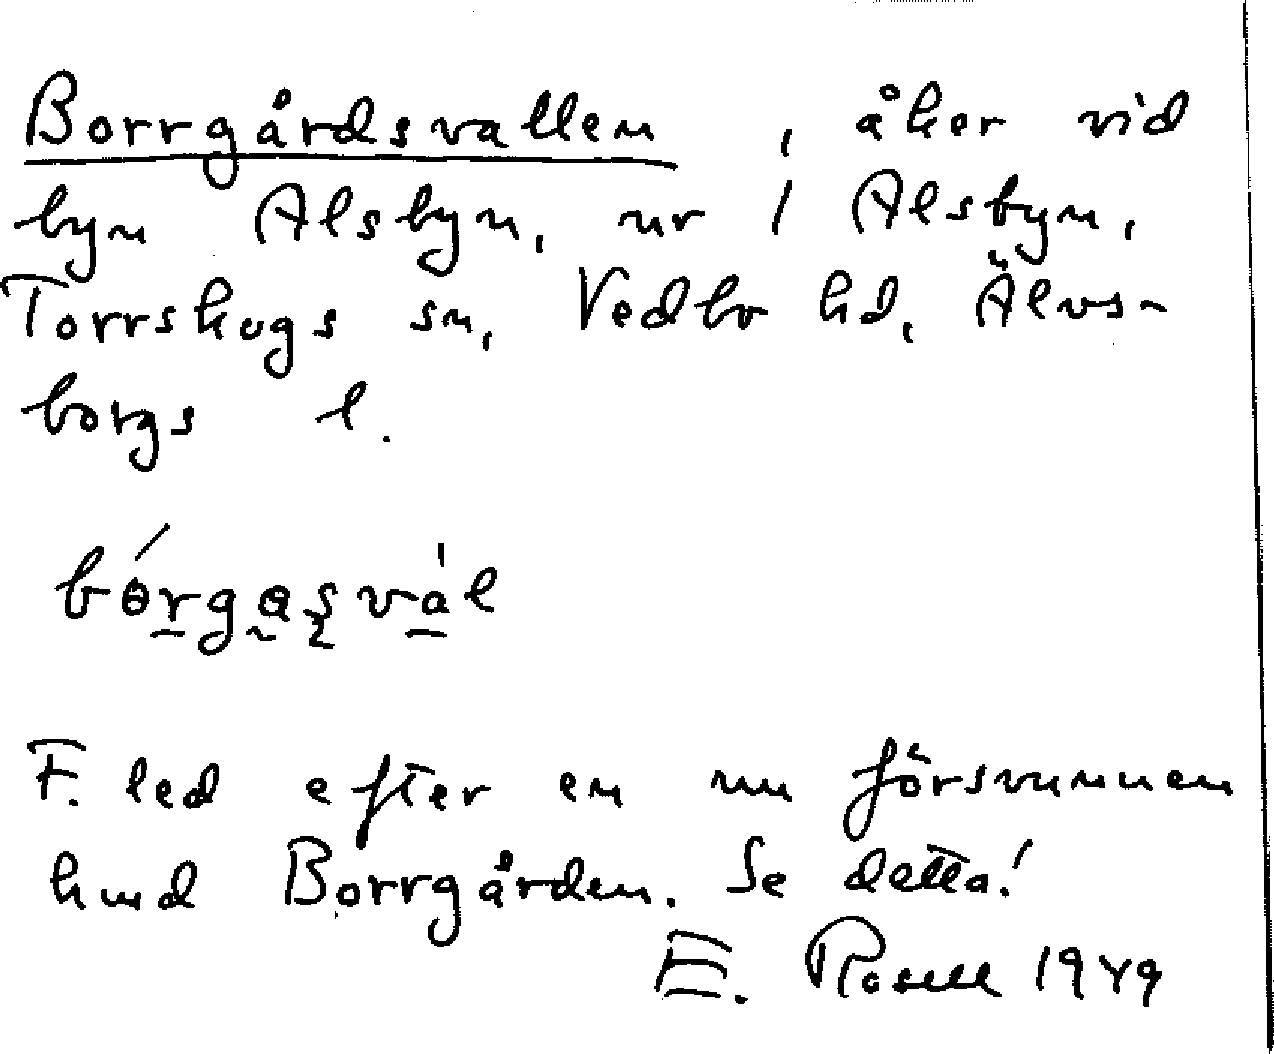 Borrgårdsvallen, åker vid
byn Alsbyn, nr 1 Alsbyn,
Torrskogs sn, Vedbo hd, Älvs-
borgs l.
F. led efter en nu försvunnen
hmd Borrgården. Se detta!
E. Rosell 1949